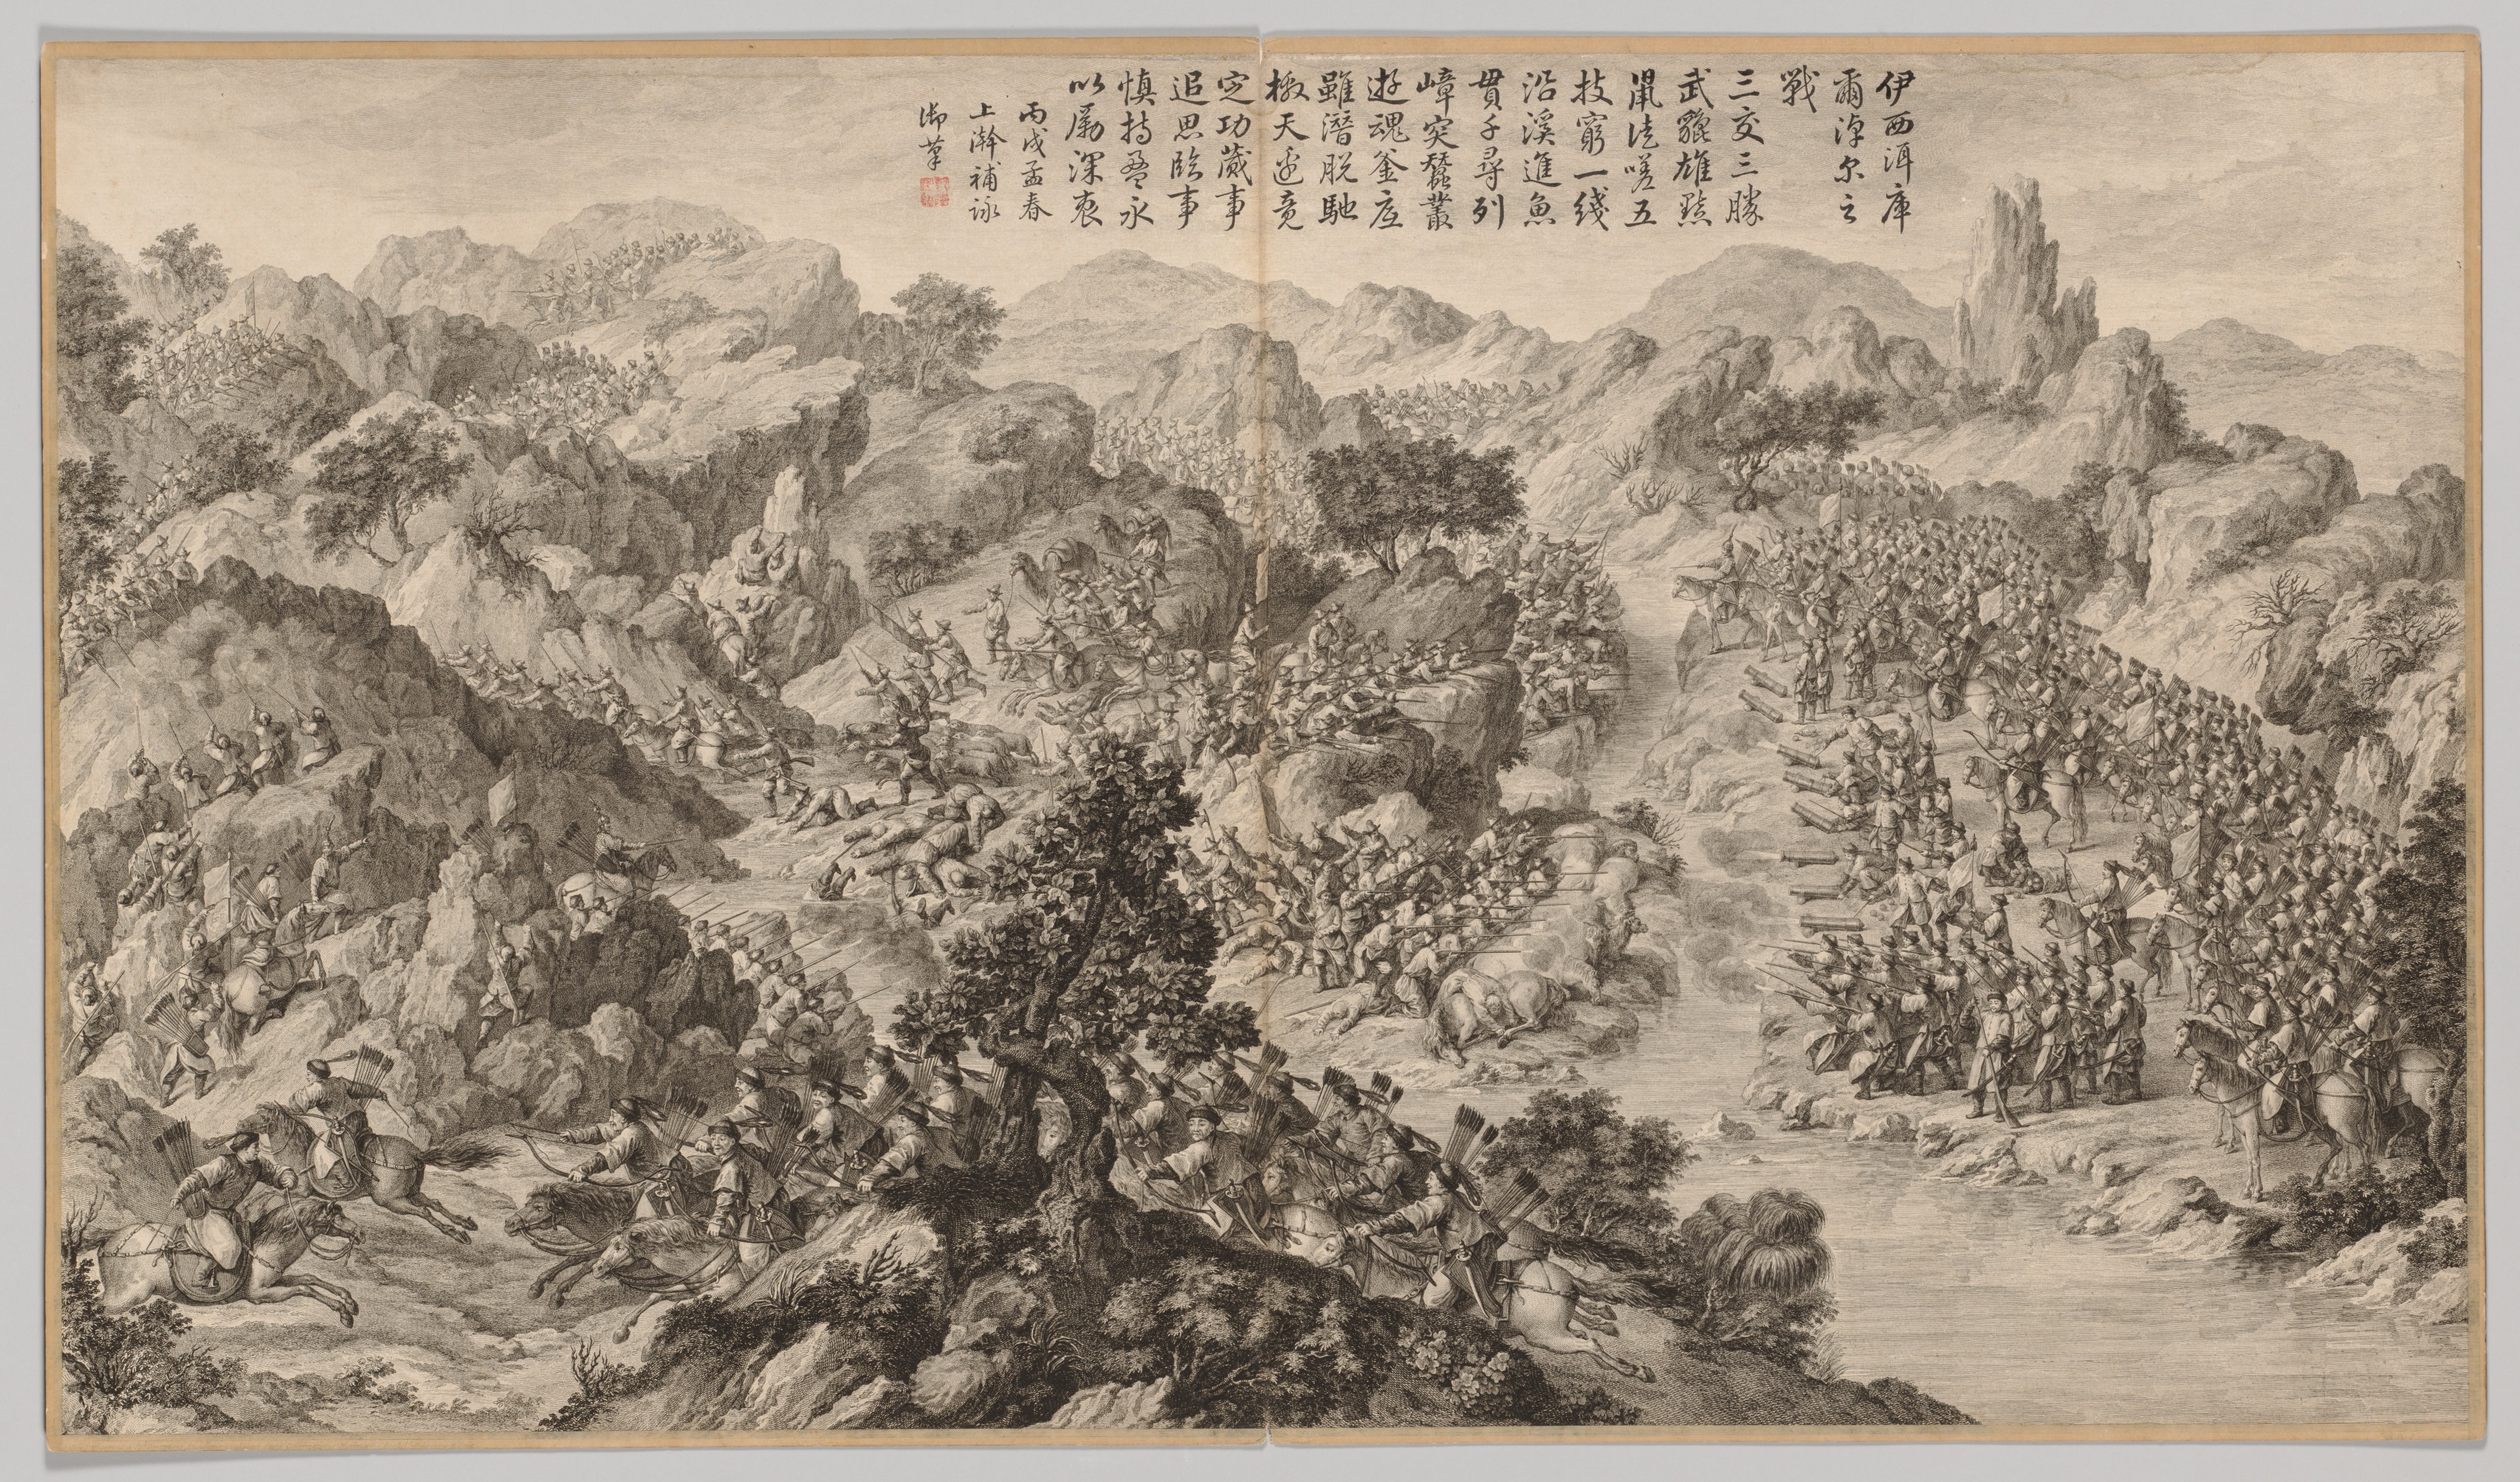 伊西洱庫
爾淖尔之
戰
三交三勝
武貔雄黠
鼠怯嗟五
技窮一綫
沿溪進魚
貫千尋列
嶂突蠶叢
遊魂釜底
雖潛脱馳
檄天邊竟
定功蕆事
追思臨事
慎持盈永
以勵深衷
丙戌孟春
上澣補詠
御筆